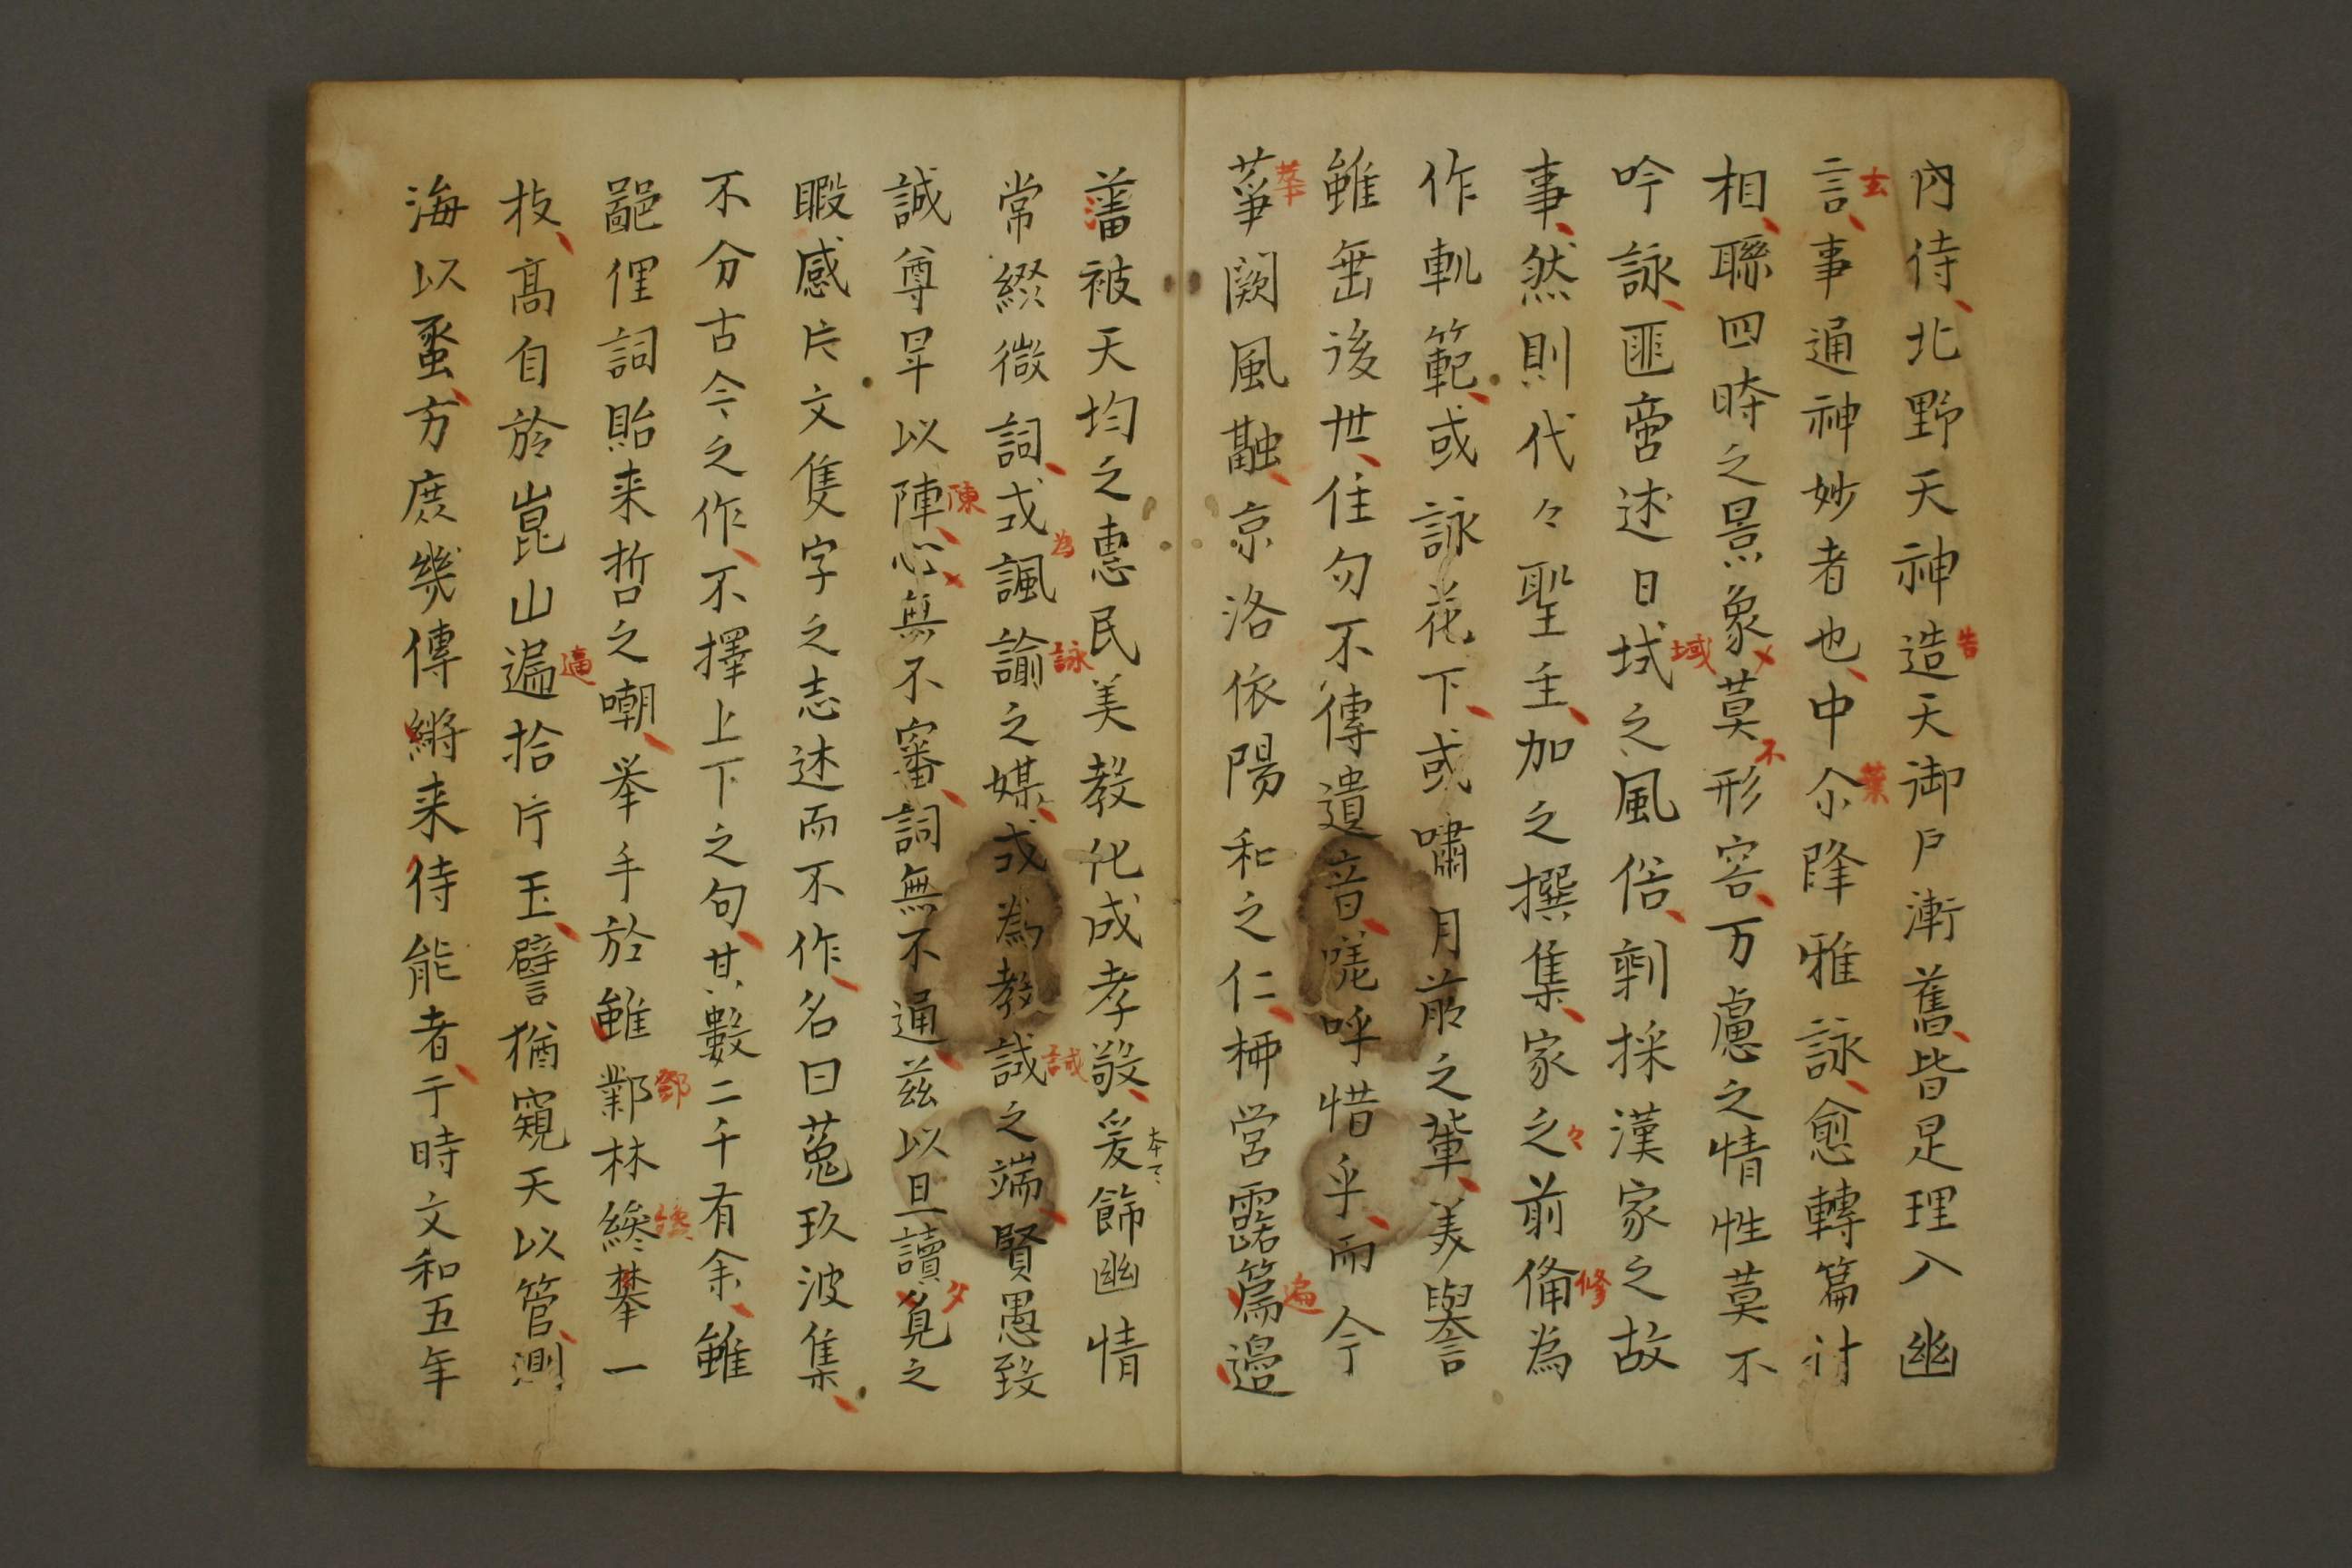 内侍北野天神造天御戸漸舊皆足理入幽
言事通神妙者也中尒降雅詠愈轉篇計
相聯四時之景象莫形容万慮之情性莫不
吟詠匪啻述日域之風俗剰採漢家之故
事然則代々聖主加之撰集家之前脩為
作軌範或詠花下或嘯月前之輩美譽
雖垂後世住勿不傳遺音嗟呼惜乎而今
葦闕風融京洛依陽和之仁柳営露篇邉
藩被天均之惠民美教化成孝敬爰餝幽情
常綴微詞或諷諭之媒或為教誡之端賢愚致
誠尊卑以陣心無不審詞無不通茲以旦讀覓之
暇感片文隻字之志述而不作名曰菟玖波集
不分古今之作不擇上下之句其數二千有余雖
鄙俚詞貽来哲之嘲挙手於雖鄴林纔攀一
枝高自於崑山遍拾片玉譬猶窺天以管測
海以蠡方庶幾傳將来待能者于時文和五年
玄
告
葉
不
域
々
修
莘
遍
本マヽ
為
詠
誡
陳
夕
鄧
纔
逼